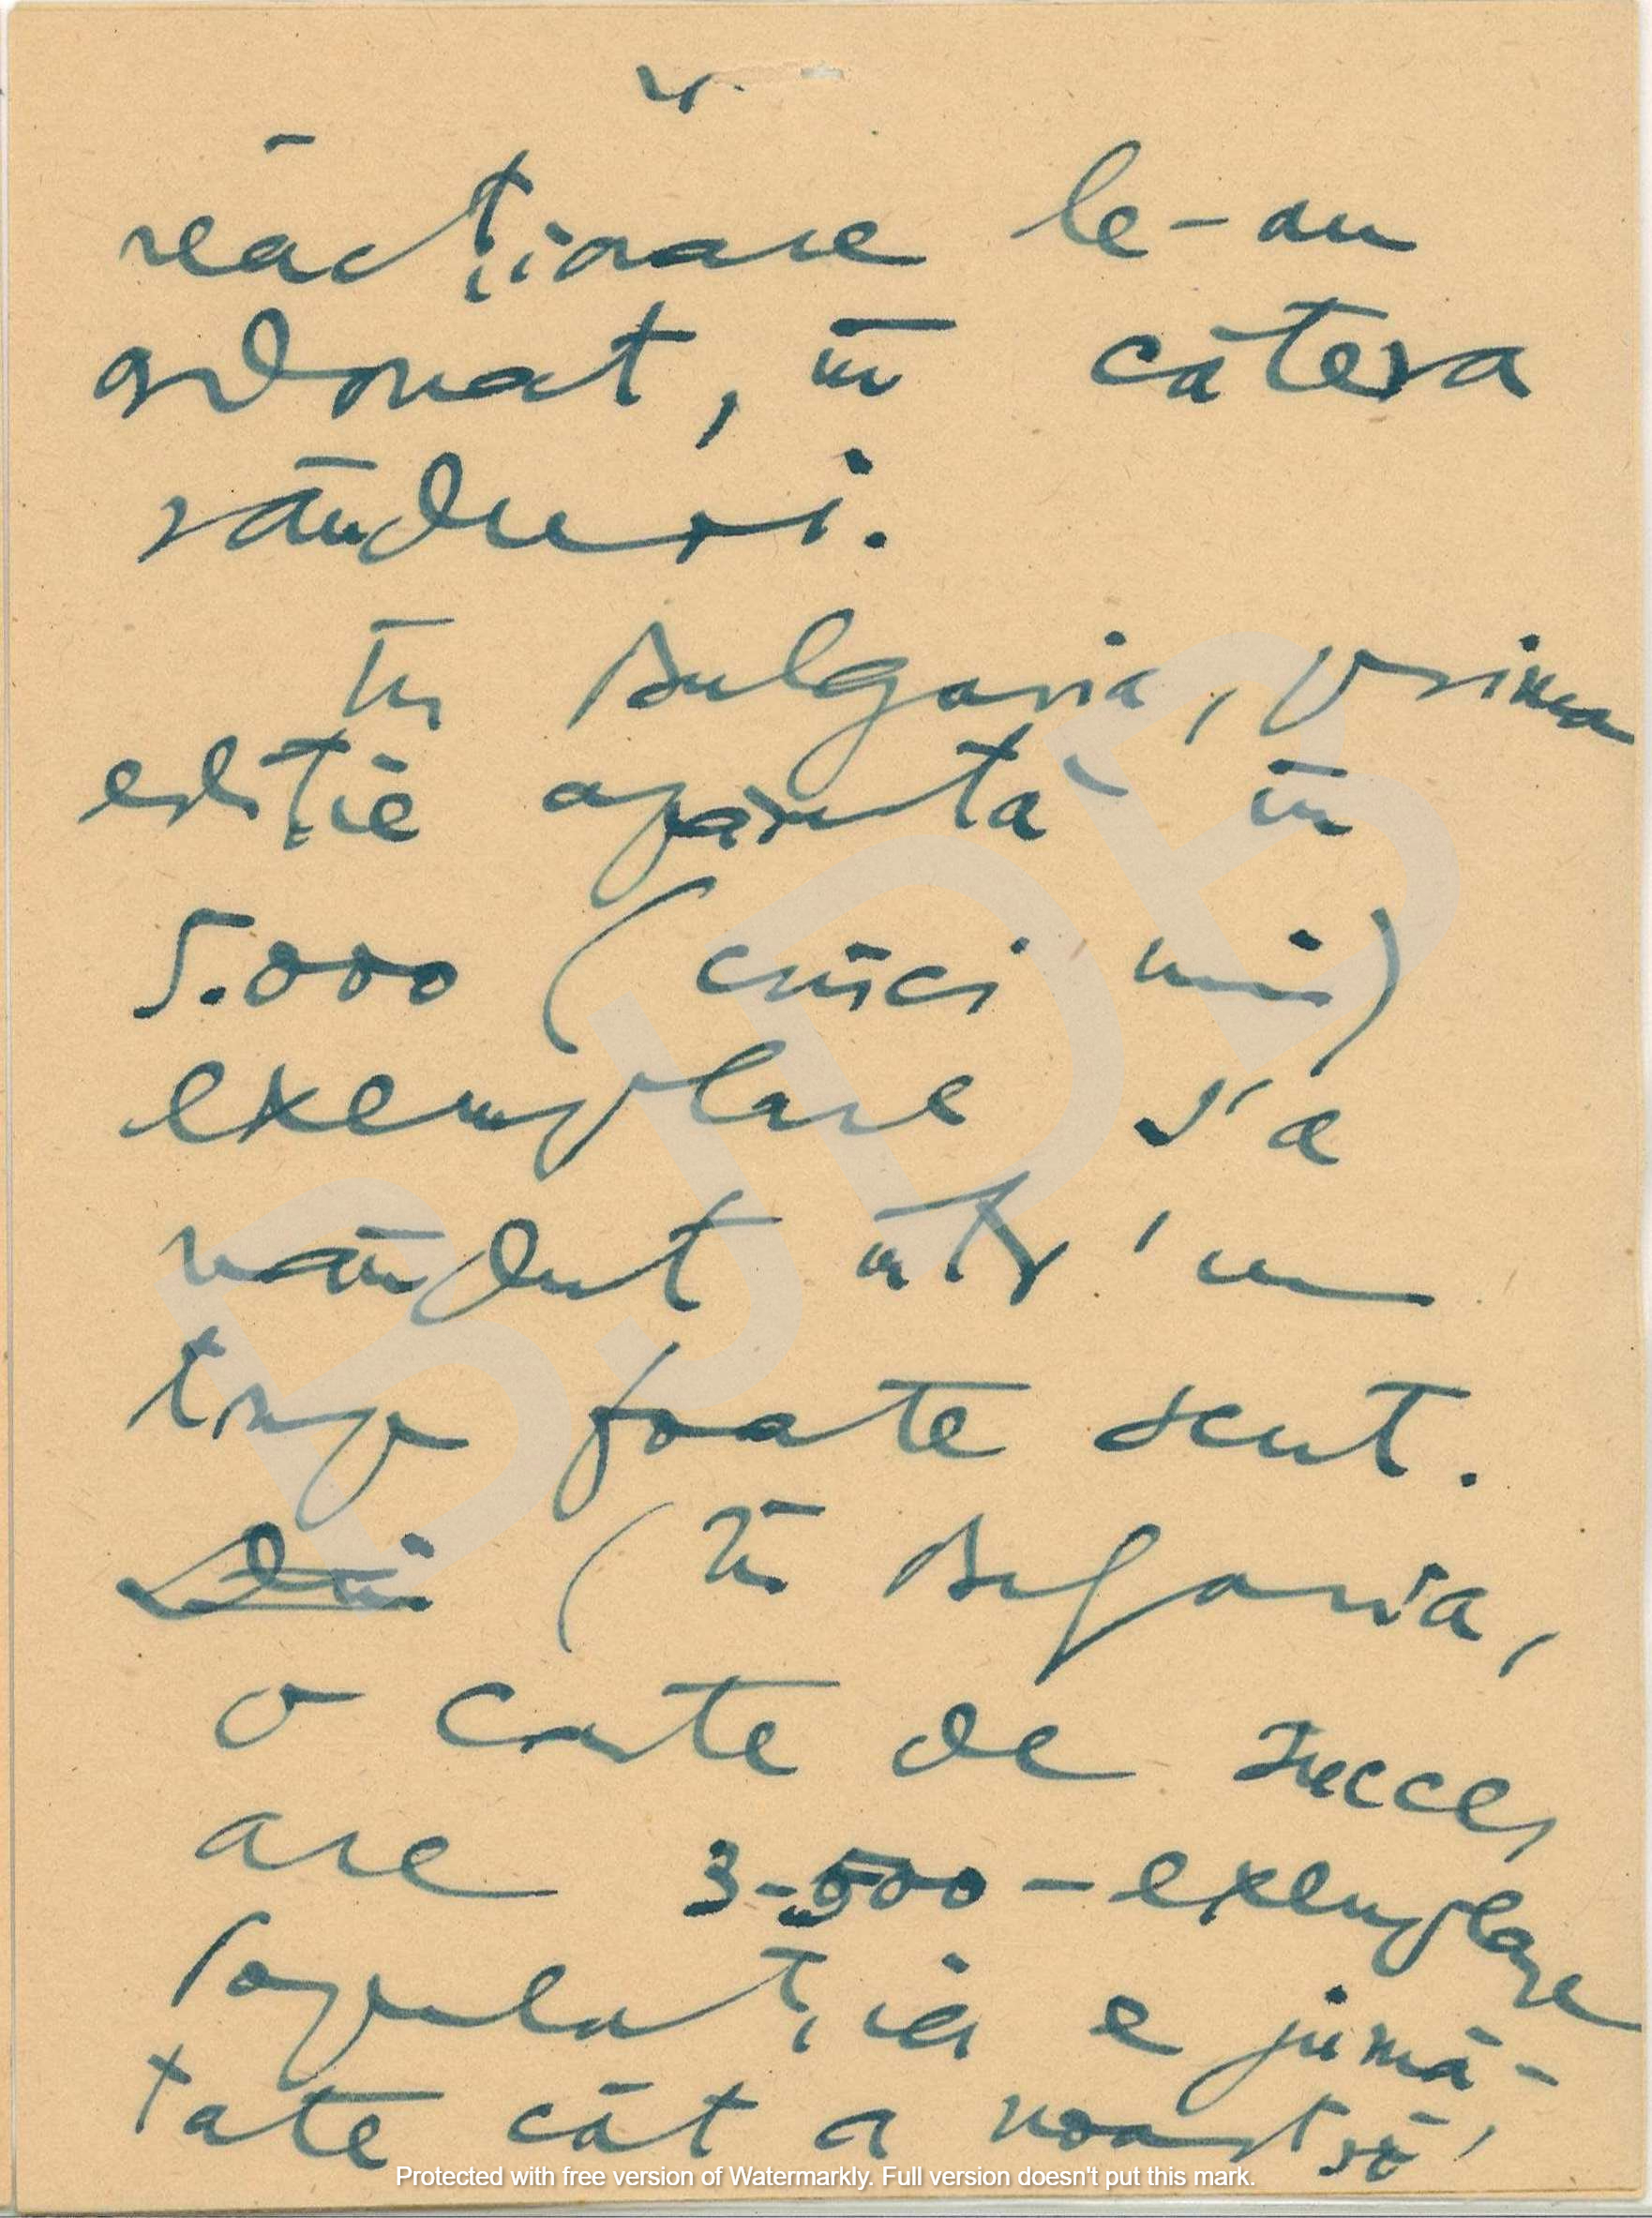 reacționare le-au
ordonat, în câteva
rânduri.
În Bulgaria, prima
ediție apărută în
5.000 (cinci mii)
exemplare s'a
vândut într'un
timp foarte scurt.
(În Bulgaria,
o carte de succes
are 3-500-exemplare
populația e jumă-
tate cât a noastră,
BJDB
Protected with free version of Watermarkly. Full version doesn't put this mark.